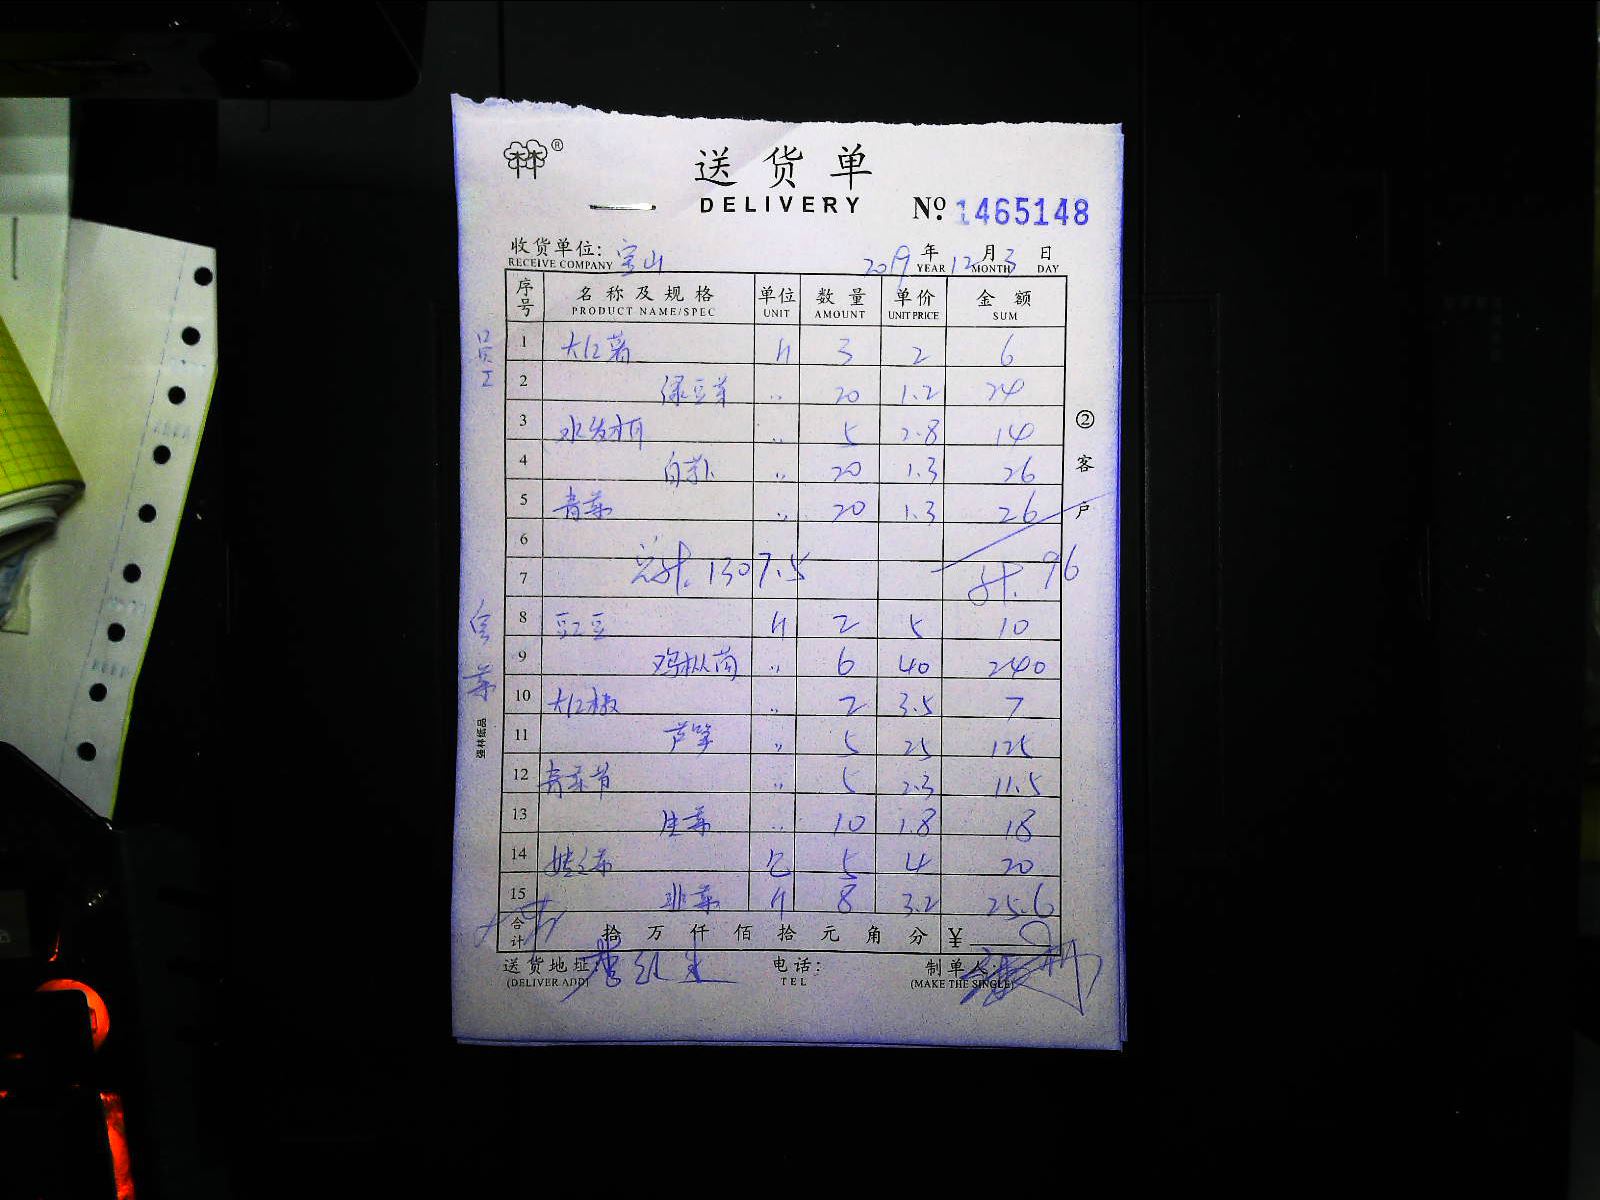 林®
送货单
DELIVERY
No. 1465148
收货单位: 宝山 2019 年 12 月 3 日
RECEIVE COMPANY YEAR MONTH DAY
序号 名称及规格 单位 数量 单价 金额
PRODUCT NAME/SPEC UNIT AMOUNT UNIT PRICE SUM
员工
1 大红薯 斤 3 2 6
2 绿豆芽 〃 20 1.2 24
3 〃 5 2.8 14
4 〃 20 1.3 26
5 青菜 〃 20 1.3 26
6
7 总计. 1307.5 计. 96
8 豆 斤 2 5 10
9 鸡枞菌 〃 6 40 240
10 大红椒 〃 2 3.5 7
11 芦笋 〃 5 25 125
12 青菜 〃 5 2.3 11.5
13 生菜 〃 10 1.8 18
14 娃娃菜 包 5 4 20
15 韭菜 斤 8 3.2 25.6
合计 拾 万 仟 佰 拾 元 角 分 ¥
送货地址: 电话: 制单人:
(DELIVER ADD) TEL (MAKE THE SINGLE)
② 客户
强林纸品